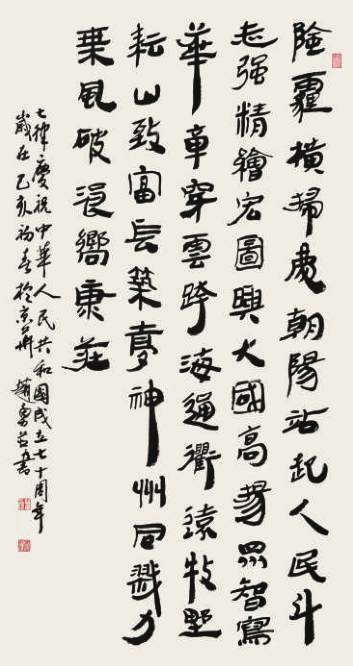 險霾橫掃處朝陽站起人民斗
志强精繪宏圖興大國高揚眾智寫
華章穿雲跨海通衢遠牧野
耘山致富長築夢神州同戮力
乘風破浪嚮康莊
七律慶祝中華人民共和國成立七十周年
歲在己亥初春於京華趙書